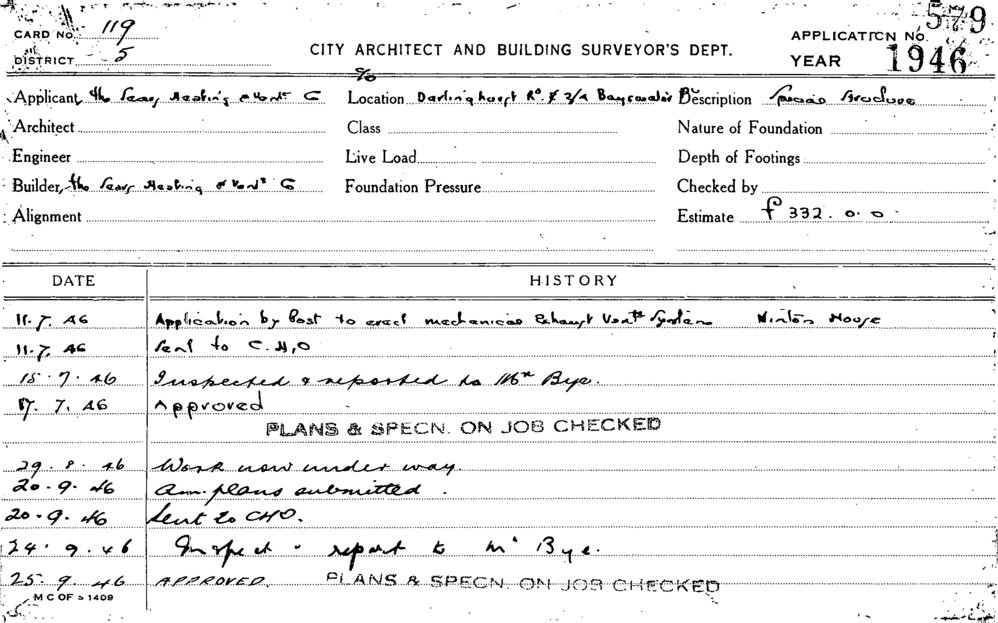 CARD No. 119
APPLICATION No. 579
DISTRICT 5
CITY ARCHITECT AND BUILDING SURVEYOR'S DEPT.
YEAR 1946
c/o
Applicant, the Heating & Vent C Location Darlinghurst Rd. & 2/4 Bayswater Rd Description
Architect Class Nature of Foundation
Engineer Live Load Depth of Footings
Builder, the Heating & Vent C Foundation Pressure Checked by
Alignment Estimate £ 332.0.0
DATE HISTORY
11.7.46 Application by Post to erect mechanical Exhaust Vent System Winton House
11.7.46 Sent to C.H.O
15.7.46 Inspected & reported to Mr Bye.
17.7.46 Approved
PLANS & SPECN. ON JOB CHECKED
29.8.46 Work now under way.
20.9.46 Am. plans submitted.
20.9.46 Sent to CHO.
24.9.46 Inspect report to Mr Bye.
25.9.46 APPROVED. PLANS & SPECN. ON JOB CHECKED
M C OF 1409